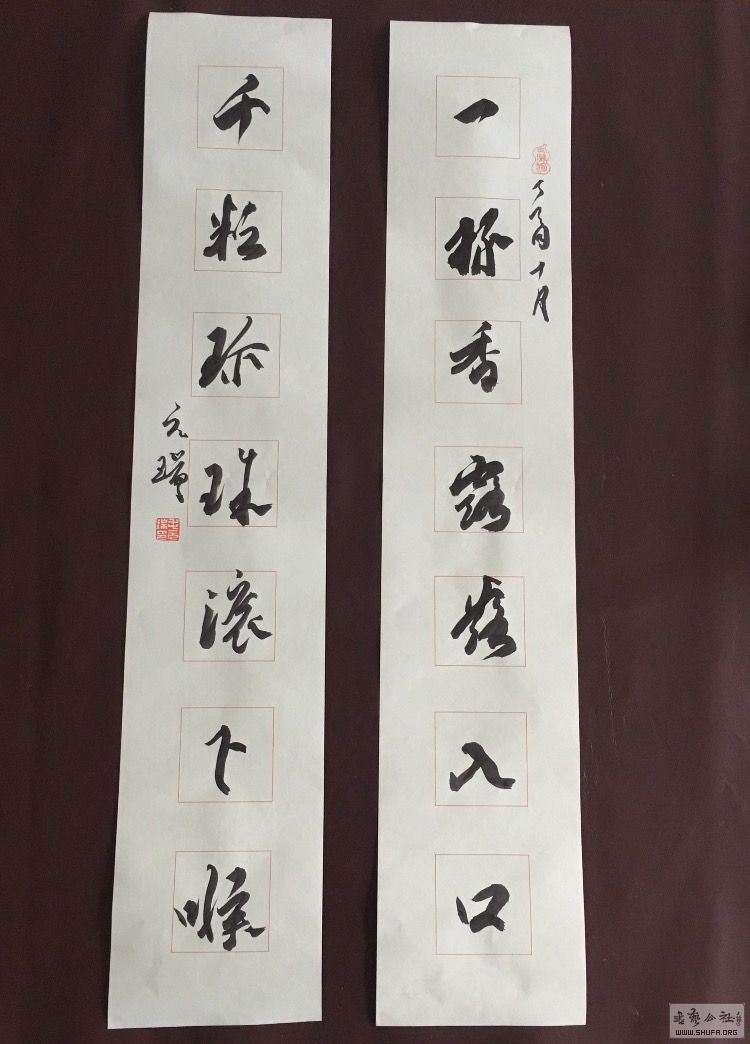 一杯香露落入口
丁酉十月
千粒珍珠滚下喉
元瑞
书艺公社
WWW.SHUFA.ORG